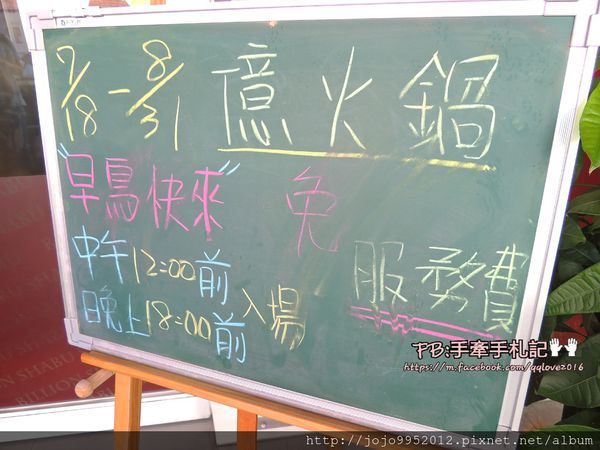 7/18 - 8/31 億火鍋
"早鳥快來" 免
服務費
中午12:00前
晚上18:00前
入場
FB:手牽手札記
https://m.facebook.com/qqlove2016
http://jojo9952012.pixnet.net/album